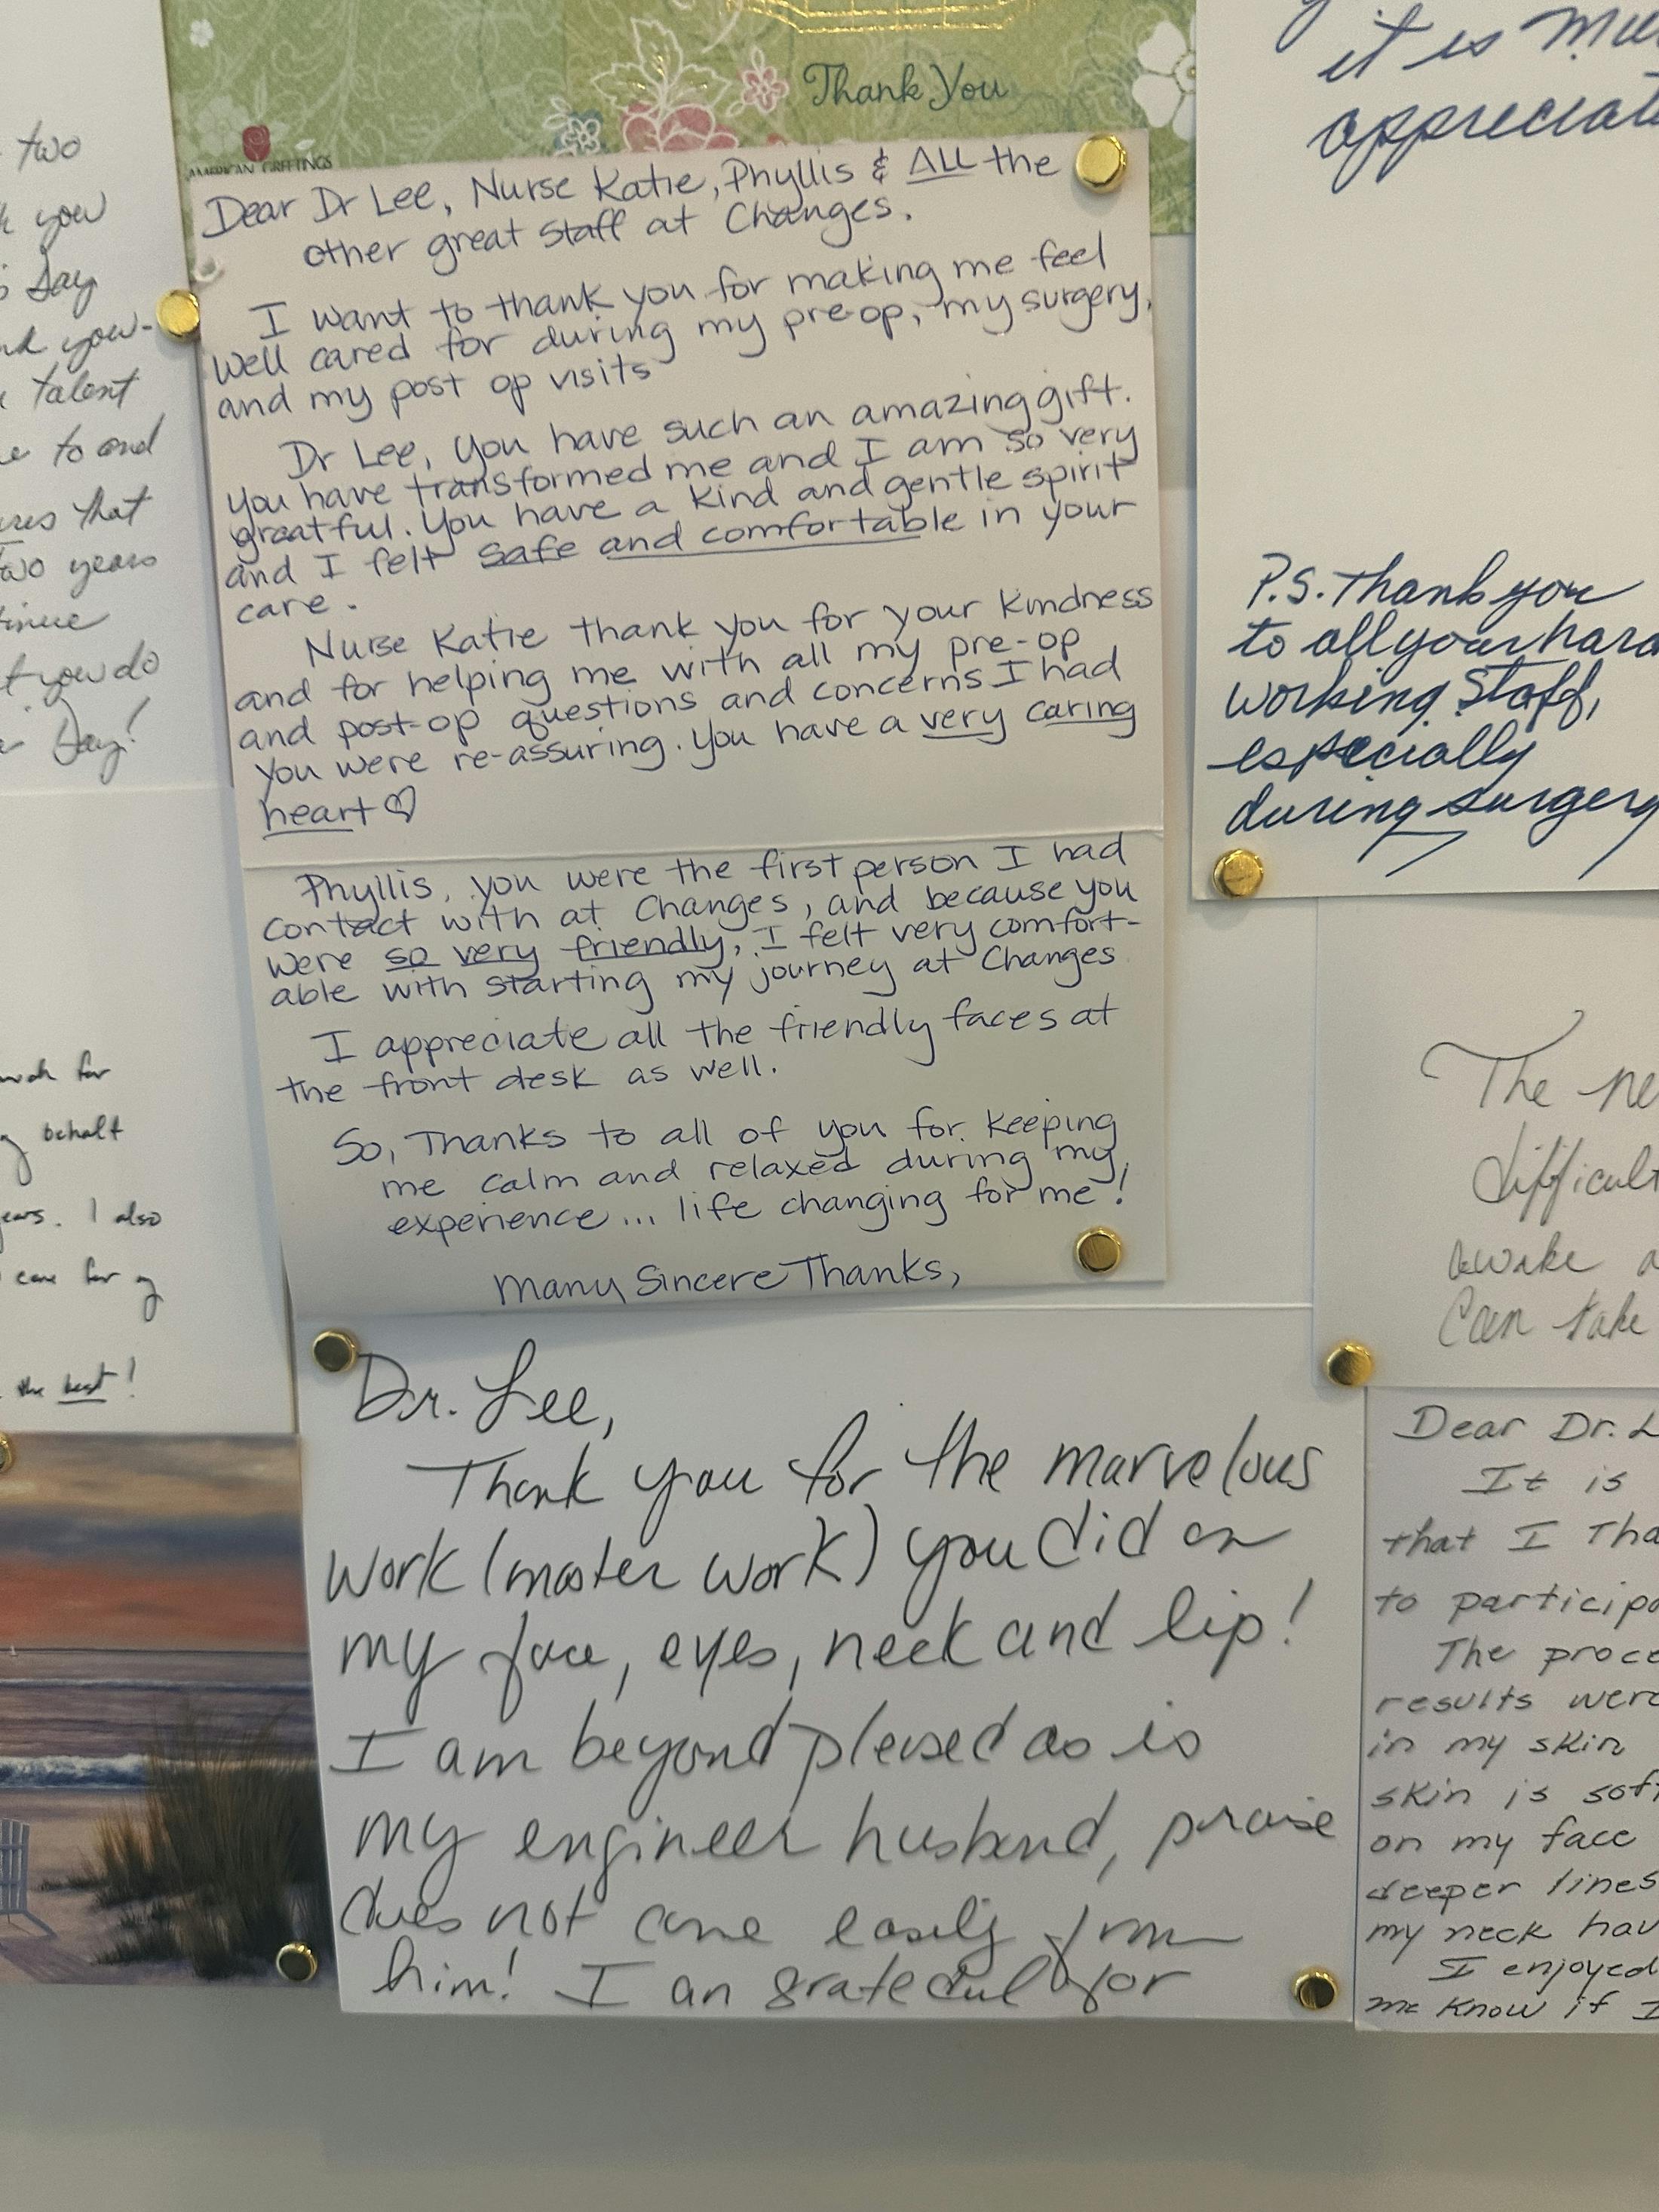 two
you
Day
you-
talent
to and
that
two years
you do
Day!
for
behalf
I also
care for
the best!
Thank You
AMERICAN GREETINGS
Dear Dr Lee, Nurse Katie, Phyllis & ALL the
other great staff at Changes.
I want to thank you for making me feel
well cared for during my pre-op, my surgery,
and my post op visits
Dr Lee, you have such an amazing gift.
you have transformed me and I am so very
greatful. You have a kind and gentle spirit
and I felt safe and comfortable in your
care.
Nurse Katie thank you for your kindness
and for helping me with all my pre-op
and post-op questions and concerns I had
you were re-assuring. You have a very caring
heart
Phyllis, you were the first person I had
contact with at Changes, and because you
were so very friendly, I felt very comfort-
able with starting my journey at Changes
I appreciate all the friendly faces at
the front desk as well.
So, Thanks to all of you for keeping
me calm and relaxed during my
experience... life changing for me!
Many Sincere Thanks,
Dr. Lee,
Thank you for the marvelous
work (master work) you did on
my face, eyes, neck and lip!
I am beyond pleased as is
my engineer husband, praise
does not come easily from
him! I am grateful for
it is
P.S. Thank you
to all your hard
working staff,
especially
during surgery
The
difficult
awake
Can take
Dear Dr. L
It is
that I Tha
to participa
The proce
results were
in my skin
skin is sof
on my face
deeper lines
my neck hav
I enjoyed
me know if I